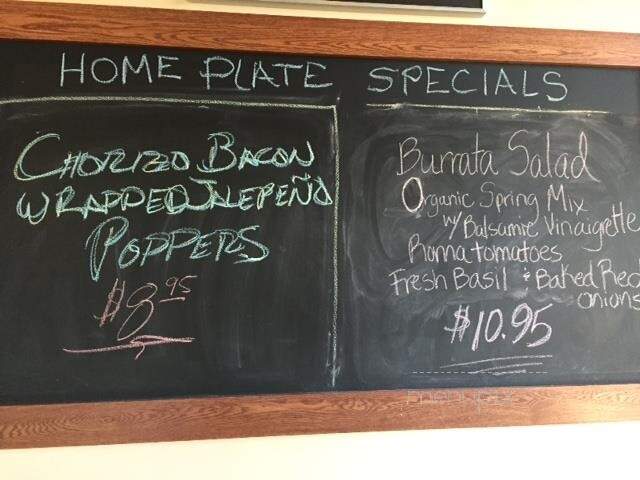 HOME PLATE SPECIALS
CHORIZO BACON
WRAPPED JALEPEÑO
POPPERS
$8.95
Burrata Salad
Organic Spring Mix
w/ Balsamic Vinaigrette
Romna tomatoes
Fresh Basil & Baked Red
onions
$10.95